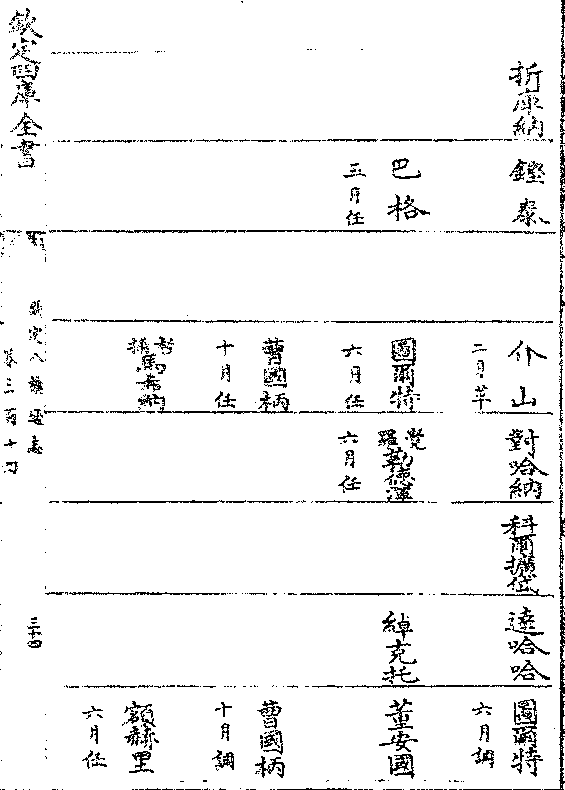 折庫納
鏗泰
介山
二月革
對哈納
科爾擴岱
達哈哈
圖爾特
六月調
巴格
五月任
圖爾特
六月任
覺羅勒德渾
六月任
綽克托
董安國
曹國柄
十月任
曹國柄
十月調
馬希納
額赫里
六月任
欽定四庫全書
欽定八旗通志
卷三百十
三十四